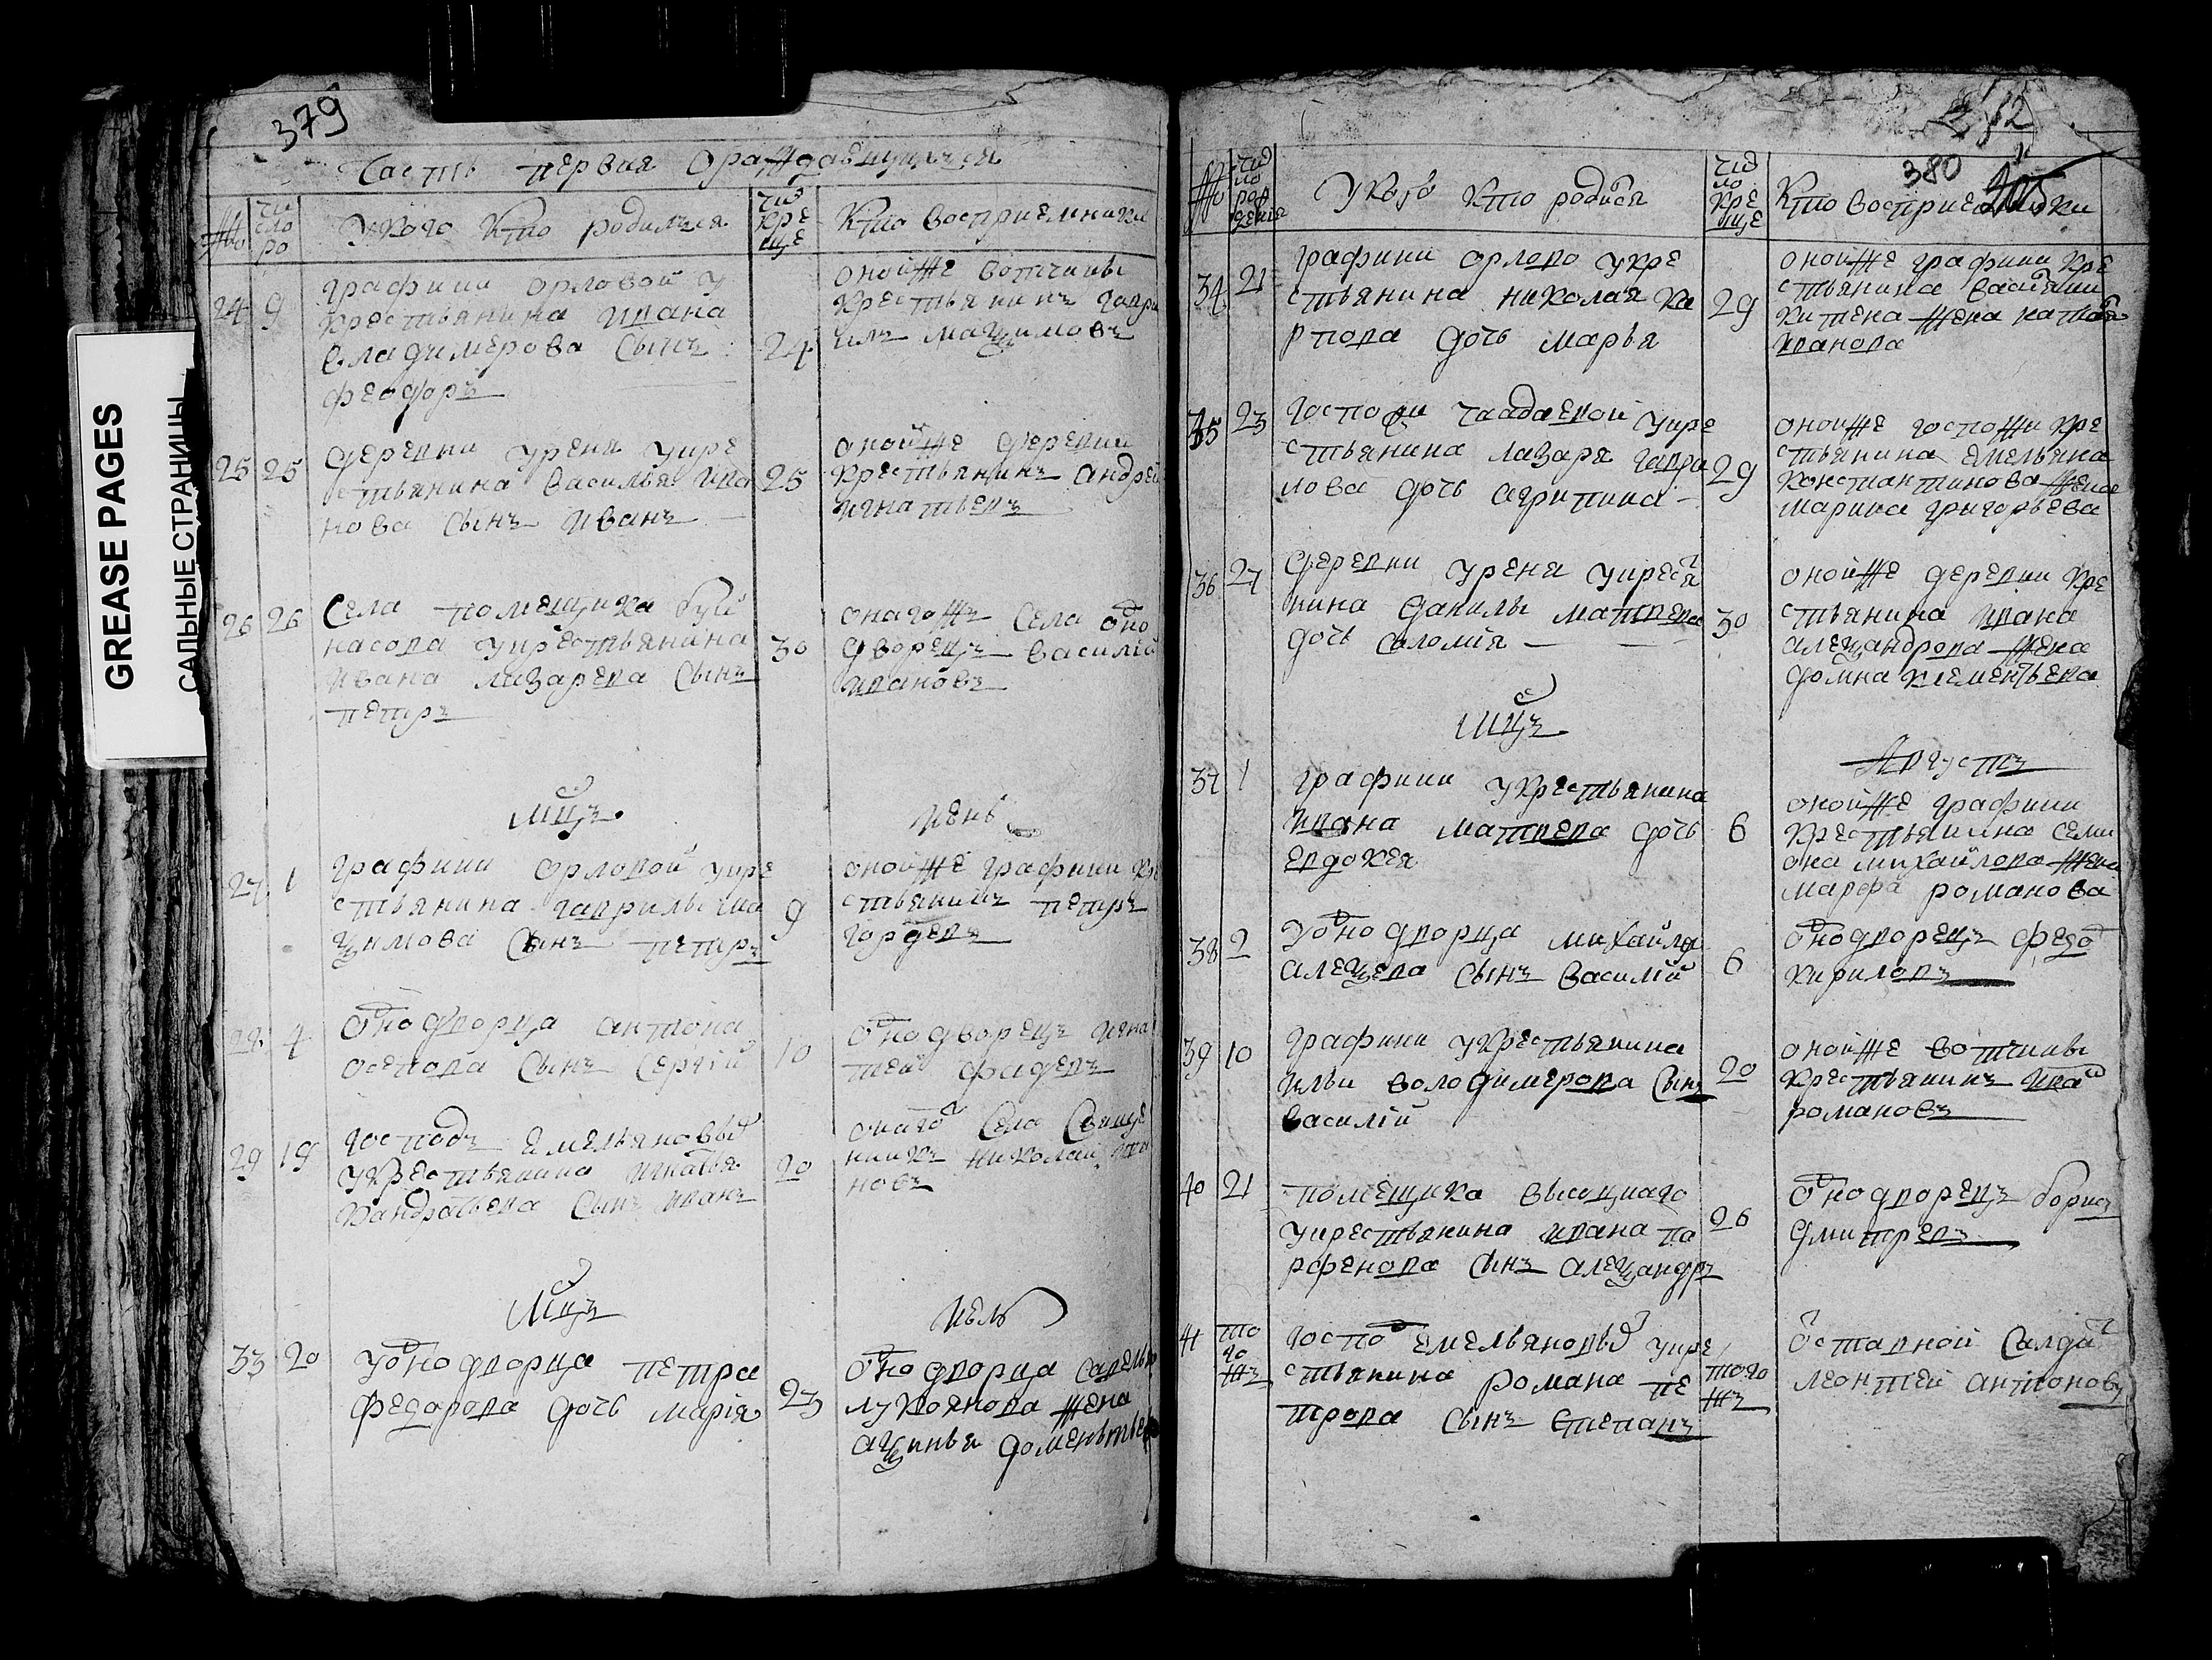 379
Часть первая ораждавшихся
число ро
У кого кто родился
чис кре ще
Кто восприемники
24 9
графини орловой у
крестьянина ивана
владимерова сынъ
феодоръ
24
оной же вотчины
крестьянинъ гаври
илъ
25 25
деревни уреня у кре
стьянина василья ива
нова сынъ иванъ
25
оной же деревни
крестьянинъ андрей
игнатьевъ
26 26
Села помещика
у крестьянина
ивана лазарева сынъ
петръ
30
онагожъ села одно
дворецъ василий
ивановъ
мцъ июнь
27 1
графини орловой у кре
стьянина гаврилы
сынъ петръ
9
оной же графини кре
стьянинъ петръ
гордевъ
28 4
однодворца антона
осепова сынъ сергiй
10
однодворецъ игна
тей
29 18
господъ емельяновыхъ
у крестьянина игнатья
кандратьева сынъ иванъ
20
онаго села свяще
никъ николай ива
новъ
Мцъ июль
33 20
у однодворца петра
федарова дочь марiя
23
однодворца савелья
лукоянова жена
аѯинья
GREASE PAGES
САЛЬНЫЕ СТРАНИЦЫ
212
380
чис ло рож дения
У кого кто родился
чис ло кре ще
Кто восприемники
34 21
графини орлово у кре
стьянина николая ка
рпова дочь марья
29
оной же графини кре
стьянина
жена
иванова
35 23
госпожи чаадаевой у кре
стьянина лазаря гаври
лова дочь агрипина
29
оной же госпожи кре
стьянина емельяна
константинова жена
марина григорьева
36 27
деревни уреня у кресть
нина данилы матвева
дочь саломiя
30
оной же деревни кре
стьянина ивана
алеѯандрова жена
домна клементьева
мцъ Августъ
37 1
графини у крестьянина
ивана матвева дочь
евдокея
6
оной же графини
крестьянина семи
она михайлова жена
марфа романова
38 2
У однодворца михайла
алеѯева сынъ василiй
6
однодворецъ федо
кириловъ
39 10
графини у крестьянина
ильи володимерова сынъ
василiй
20
оной же вотчины
крестьянинъ иван
романовъ
40 21
помещика высоцкаго
у крестьянина ивана па
рфенова сынъ алеѯандръ
26
однодворецъ борис
дмитревъ
41 того жъ
господ емельяновых у кре
стьянина романа пе
трова сынъ степанъ
того жъ
отставной салдат
леонтей антоновъ